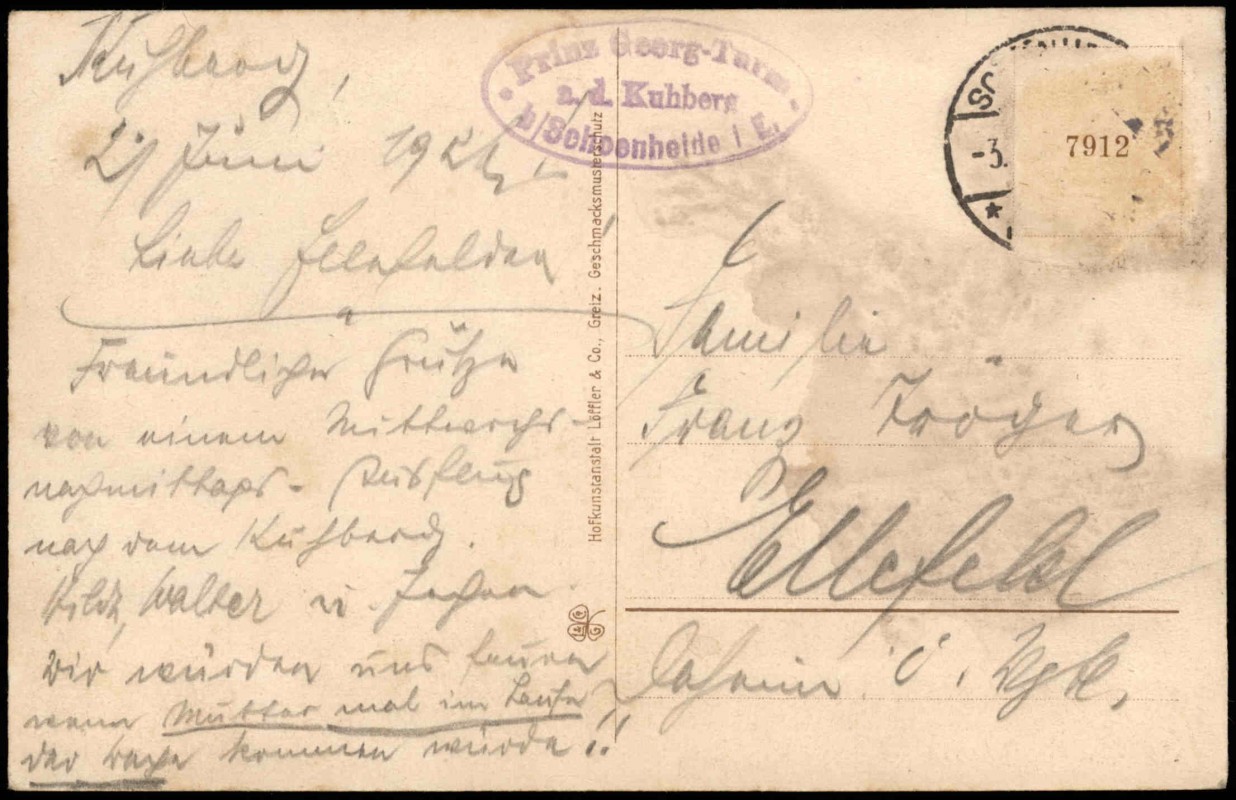 Kuhberg,
21 Juni 192
Liebe Ellefelder!
Freundliche Grüße
von einem Mittwochs-
nachmittags-Ausflug
nach dem Kuhberg.
Hilde, Walter u.
Wir würden uns freuen
wenn Mutter mal im Laufe
der Woche kommen würde!!
Prinz Georg-Turm
a. d. Kuhberg
b/Schoenheide i E.
Hofkunstanstalt Löffler & Co., Greiz. Geschmacksmusterschutz
SC
-3.
7912
Familie
Franz Tröger
Ellefeld
i. Vgtl.